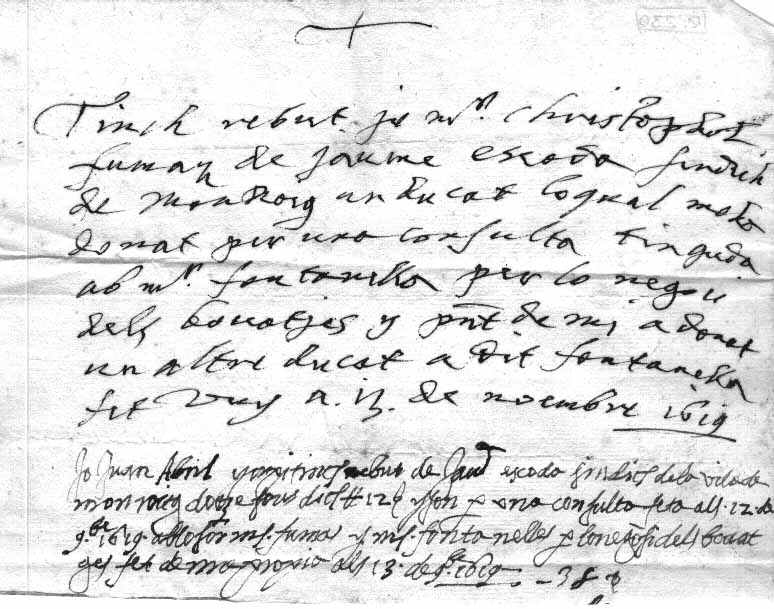 Tinch rebut jo mr. Christophol
fumas de Jaume escoda sindich
de MonRoig un ducat loqual meha
donat per una consulta tinguda
ab mr. fontanella per lo negoci
dels bouatjes y pnt de mi a donat
un altre ducat a dit fontanella
fet vuy a 13 de noembre 1619
Jo Juan Abril rebut de Jau escoda sindich dela vila de
monroig dotze sous dich # 12 ß y son p una consulta feta als 12 de
9.bre 1619 ab los mr. fumas y mr. fontanelles p lo negosi dels bouat
ges fet de ma propia als 13 de 9.bre 1619